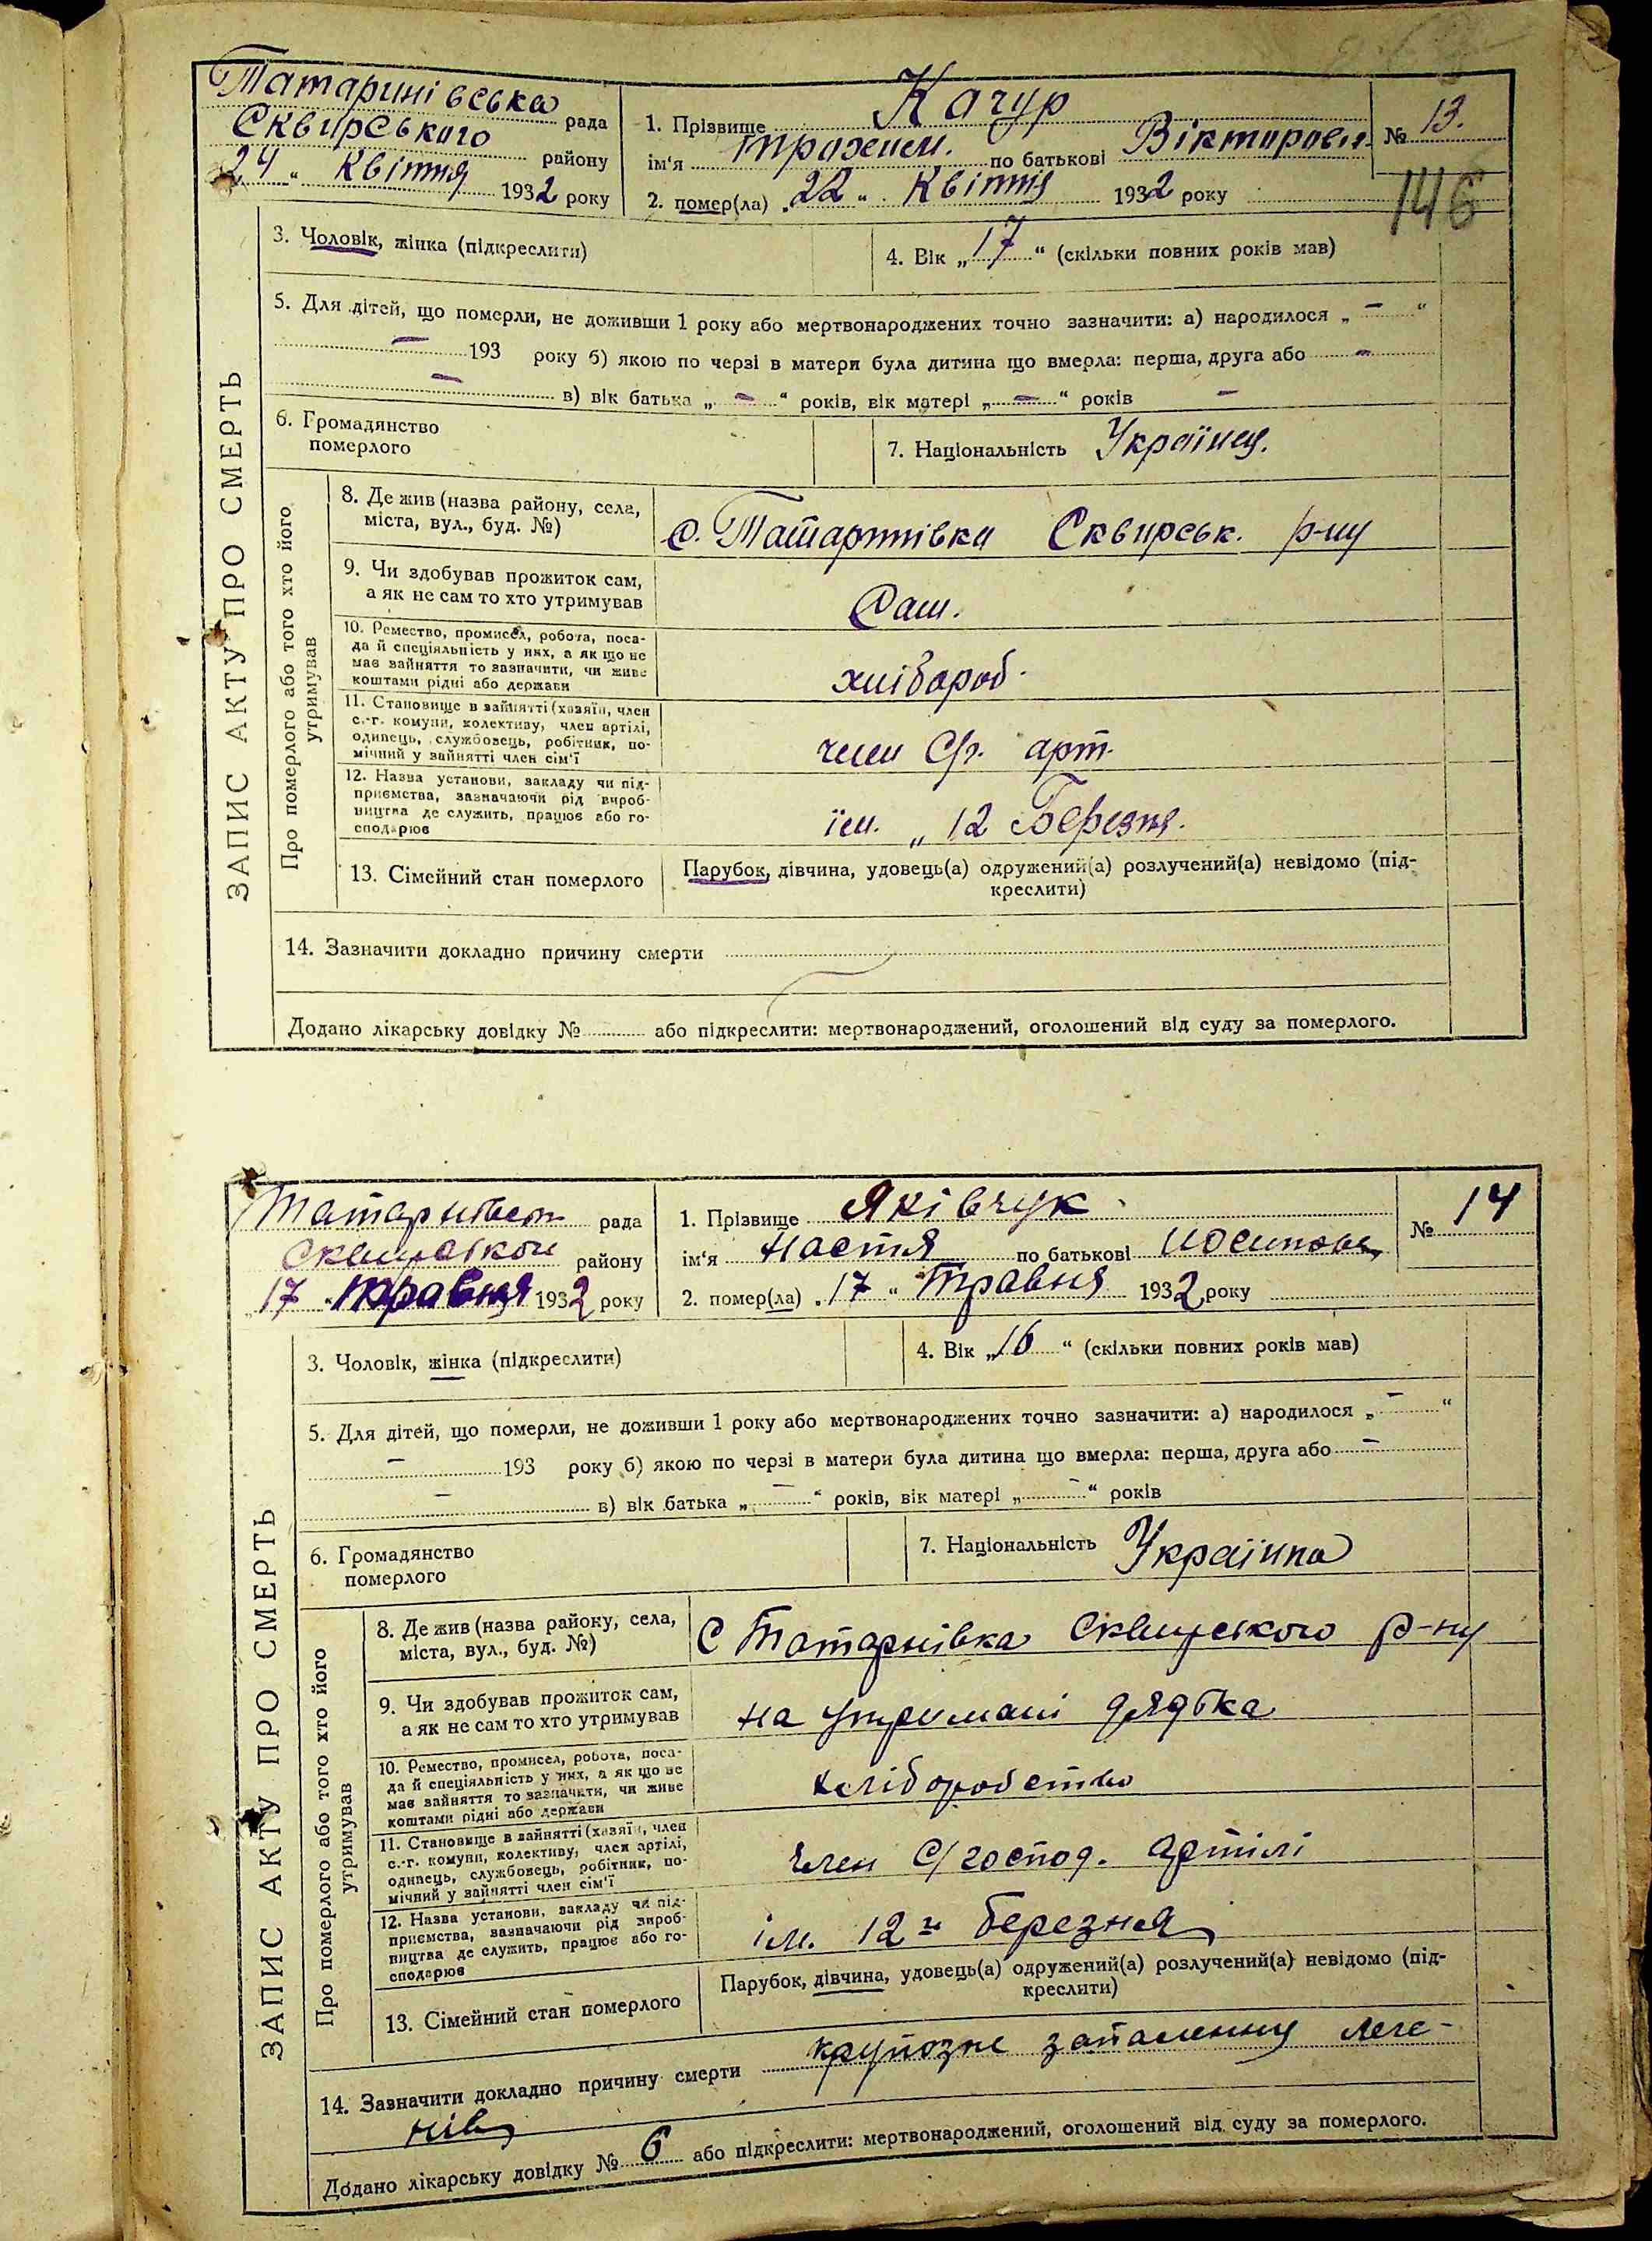 Татаринівська рада
Сквирського району
"24" Квітня 1932 року
1. Прізвище Качур
ім'я Трохим. по батькові Вікторович
2. помер(ла) "22" Квітня 1932 року
№ 13.
146
ЗАПИС АКТУ ПРО СМЕРТЬ
3. Чоловік, жінка (підкреслити)
4. Вік „17“ (скільки повних років мав)
5. Для дітей, що померли, не доживши 1 року або мертвонароджених точно зазначити: а) народилося „ – “
– 193 року б) якою по черзі в матери була дитина що вмерла: перша, друга або –
– в) вік батька „ – “ років, вік матері „ – “ років –
6. Громадянство
померлого
7. Національність Українец.
Про померлого або того хто його
утримував
8. Де жив (назва району, села,
міста, вул., буд. №)
с. Татартівка Сквирськ. р-ну
9. Чи здобував прожиток сам,
а як не сам то хто утримував
Сам.
10. Ремество, промисел, робота, поса-
да й спеціяльність у них, а як що не
має зайняття то зазначити, чи живе
коштами рідні або держави
хлібороб.
11. Становище в зайнятті (хазяїн, член
с.-г. комуни, колективу, член артілі,
одинець, службовець, робітник, по-
мічний у зайнятті член сім'ї
член С/г. арт.
12. Назва установи, закладу чи під-
приємства, зазначаючи рід вироб-
ництва де служить, працює або го-
сподарює
ім. „12 Березня.
13. Сімейний стан померлого
Парубок, дівчина, удовець(а) одружений(а) розлучений(а) невідомо (під-
креслити)
14. Зазначити докладно причину смерти
Додано лікарську довідку № або підкреслити: мертвонароджений, оголошений від суду за померлого.
рада
району
17 "травня 1932 року
1. Прізвище Яківчук
ім'я Настя по батькові
2. помер(ла) „17“ Травня 1932 року
№ 14
ЗАПИС АКТУ ПРО СМЕРТЬ
3. Чоловік, жінка (підкреслити)
4. Вік „16“ (скільки повних років мав)
5. Для дітей, що померли, не доживши 1 року або мертвонароджених точно зазначити: а) народилося „ – “
– 193 року б) якою по черзі в матери була дитина що вмерла: перша, друга або –
– в) вік батька „ – “ років, вік матері „ – “ років
6. Громадянство
померлого
7. Національність Українка
Про померлого або того хто його
утримував
8. Де жив (назва району, села,
міста, вул., буд. №)
С Татарнівка Сквирського р-ну
9. Чи здобував прожиток сам,
а як не сам то хто утримував
на утримані дядька
10. Ремество, промисел, робота, поса-
да й спеціяльність у них, а як що не
має зайняття то зазначити, чи живе
коштами рідні або держави
хліборобство
11. Становище в зайнятті (хазяїн, член
с.-г. комуни, колективу, член артілі,
одинець, службовець, робітник, по-
мічний у зайнятті член сім'ї
Член С/господ. артілі
12. Назва установи, закладу чи під-
приємства, зазначаючи рід вироб-
ництва де служить, працює або го-
сподарює
ім. 12 березня
13. Сімейний стан померлого
Парубок, дівчина, удовець(а) одружений(а) розлучений(а) невідомо (під-
креслити)
14. Зазначити докладно причину смерти крупозне запаленню леге-
нів
Додано лікарську довідку № 6 або підкреслити: мертвонароджений, оголошений від суду за померлого.